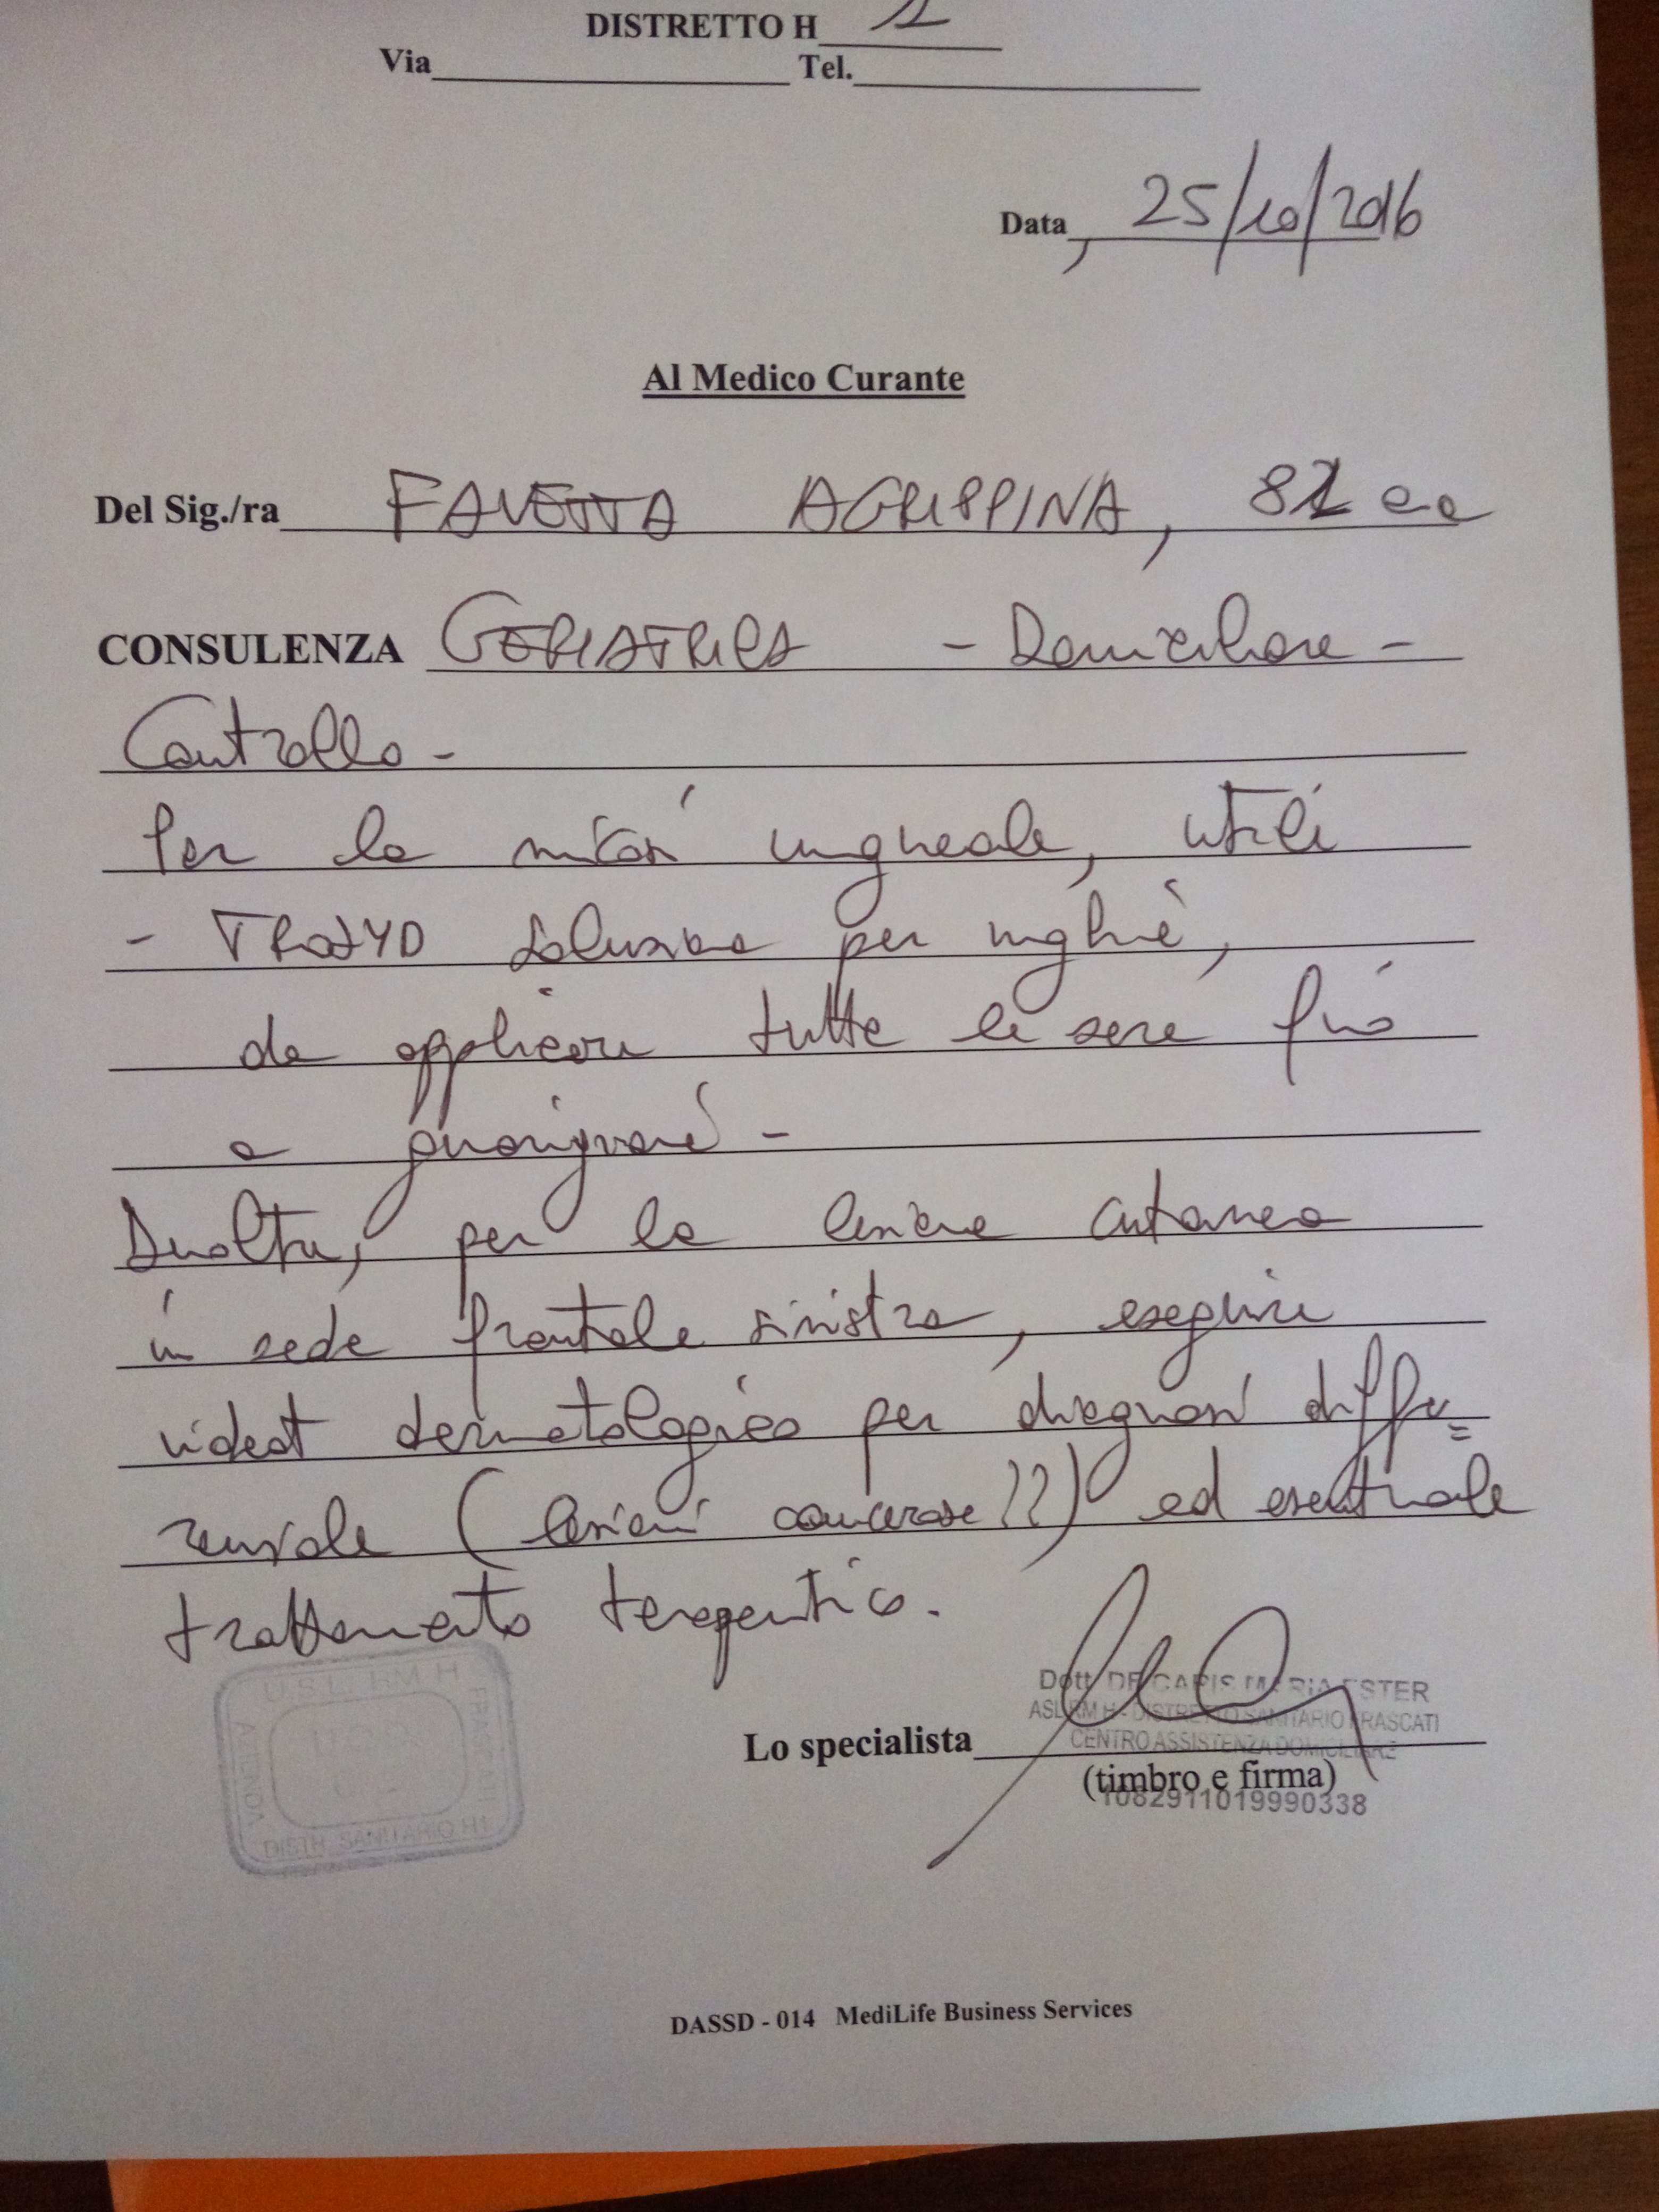 DISTRETTO H 1
Via Tel.
Data, 25/10/2016
Al Medico Curante
Del Sig./ra FAVETTA AGRIPPINA, 81 aa
CONSULENZA GERIATRICA - Domiciliare -
Controllo -
Per la micosi ungueale, utile
- TROSYD soluzione per unghie,
da applicare tutte le sere fino
a guarigione -
Inoltre, per la lesione cutanea
in sede frontale sinistra, eseguire
videat dermatologico per diagnosi diffe=
renziale (lesioni cancerose??) ed eventuale
trattamento terapeutico.
U.S.L. RM H
AZIENDA
FRASCATI
DISTR. SANITARIO H1
Dott. DE CARIS MARIA ESTER
ASL RM H - DISTRETTO SANITARIO FRASCATI
CENTRO ASSISTENZA DOMICILIARE
Lo specialista
(timbro e firma)
1082911019990338
DASSD - 014 MediLife Business Services